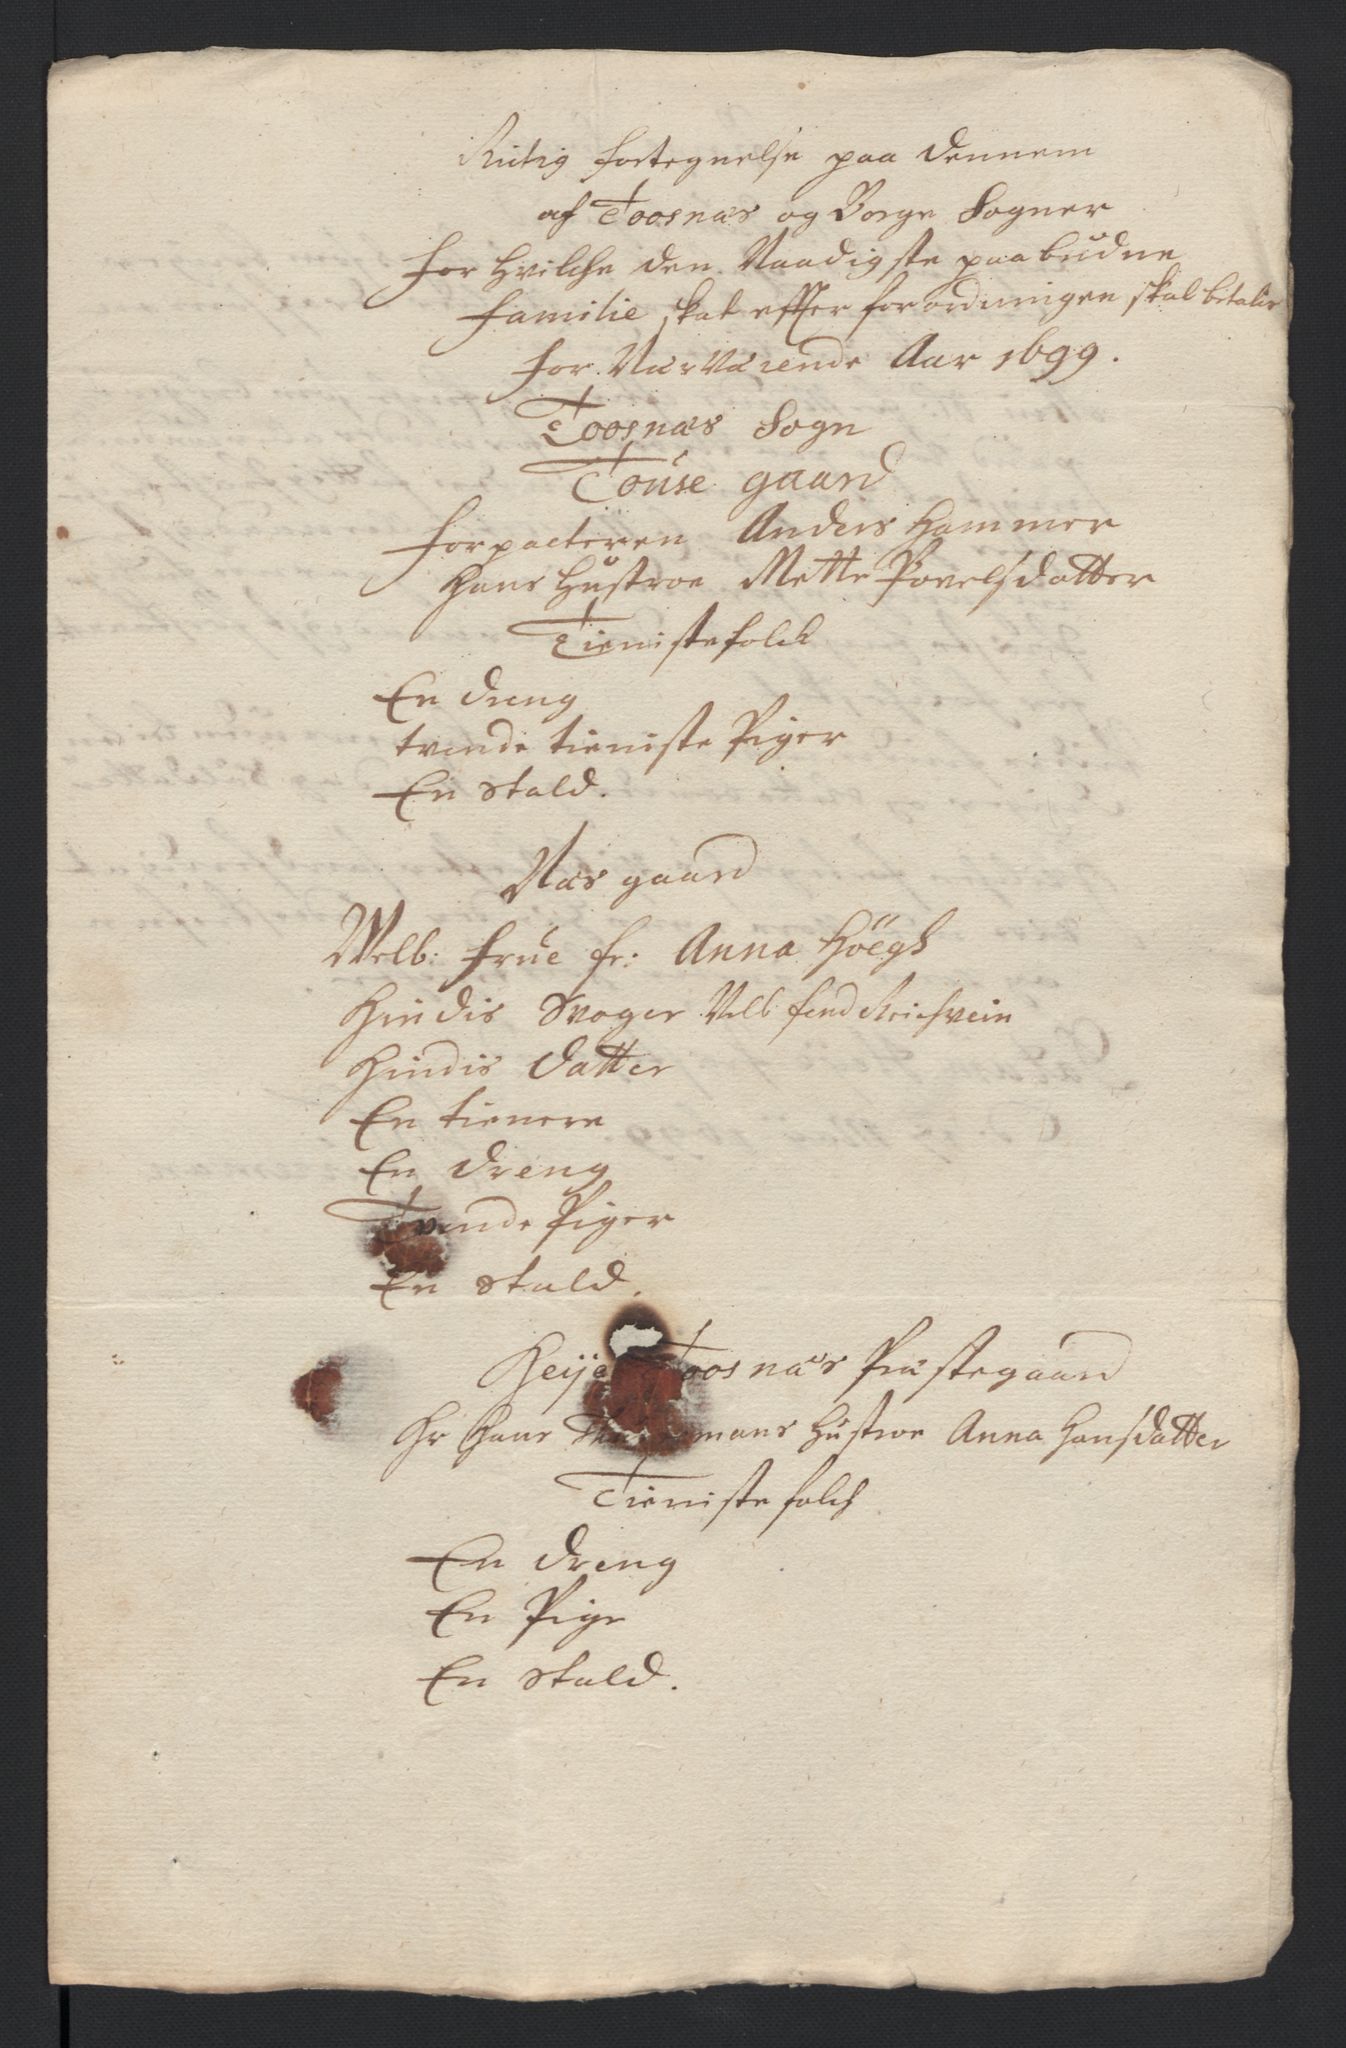 Rictig fortegnelse paa dennem
af Toosnæs og Borge Sogner
for hvilche den Naadigste paabudne
familie skat effter forordningen skal betalis
for Nærværende Aar 1699.
Toosnæs Sogn
Touse gaard
forpacteren Anders Hammer
hans hustroe Mette Povelsdatter
Tieniste folck
En dreng
tvende tieniste Piger
En stald.
Næs gaard
Welb: frue fr: Anna Höegh
hindis Svoger Velb
hindis datter
En tienere
En dreng
Tvende Piger
En stald.
Toosnæs Præstegaard
Hr Hans hustroe Anna Hansdatter
Tieniste folch
En dreng
En Pige
En stald.